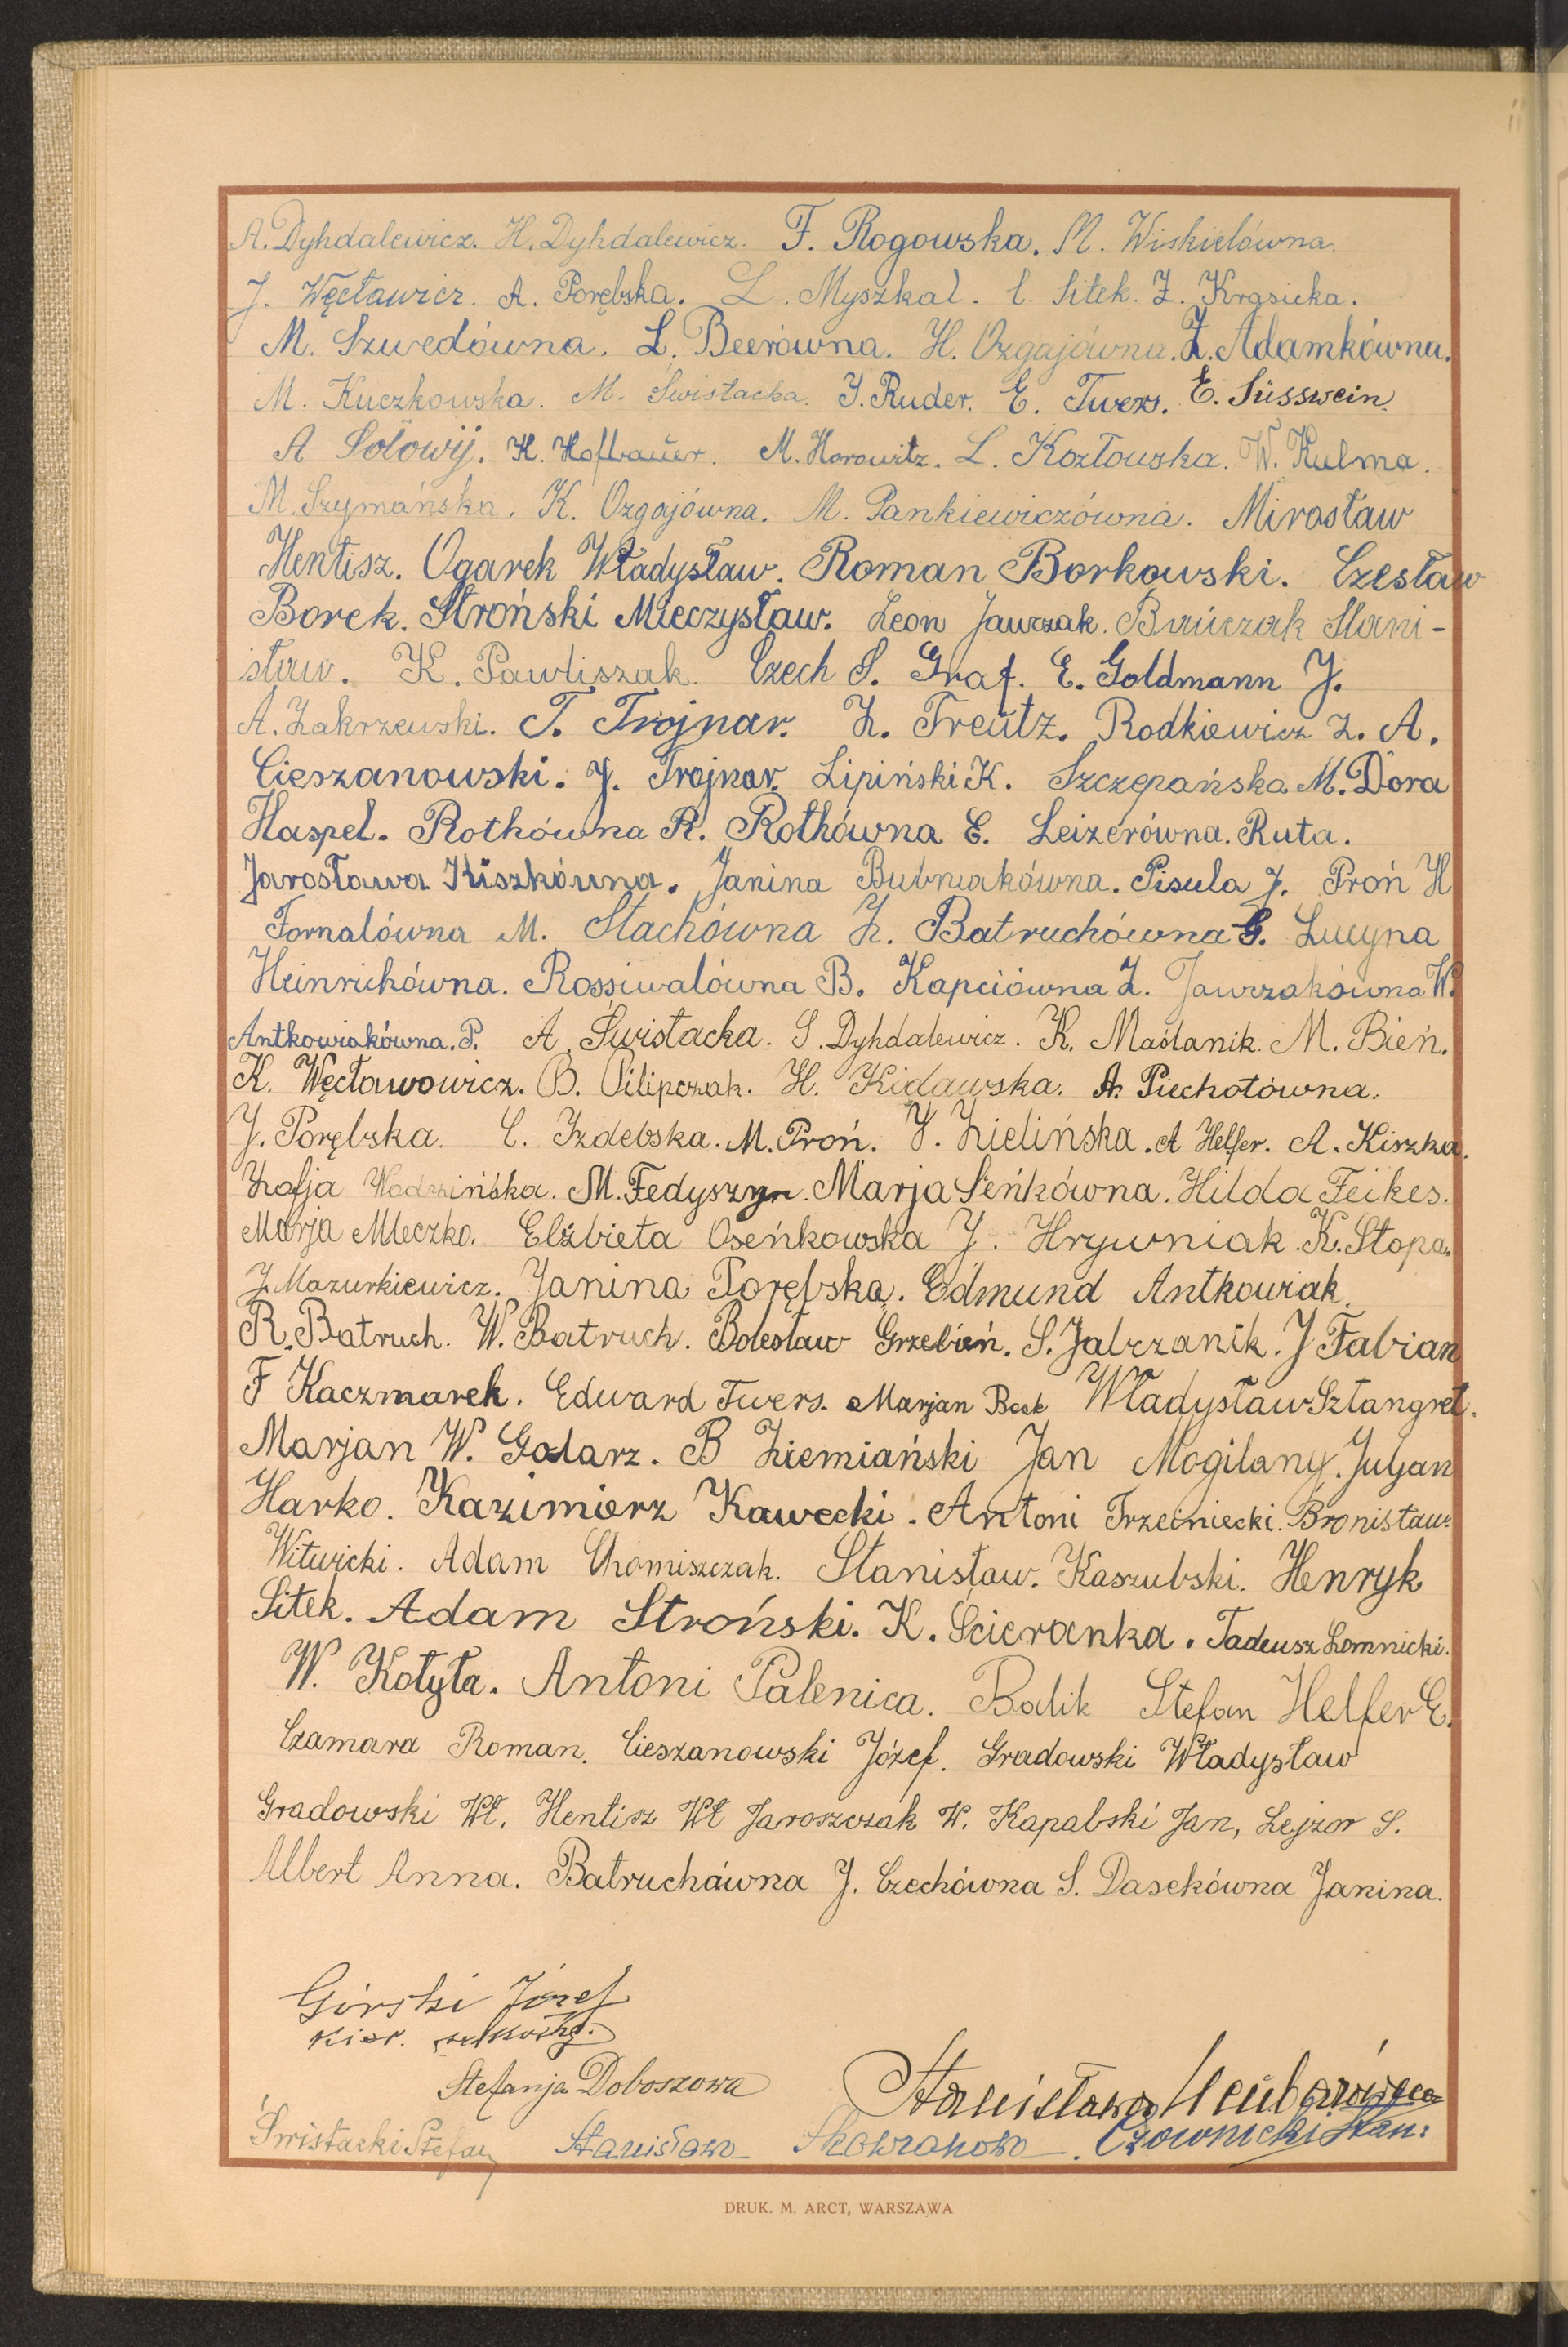 A. Dyhdalewicz. H. Dyhdalewicz. F. Rogowska. M. Wiskielówna.
J. Węcławicz. A. Porębska. L. Myszkal. C. Sitek. Z. Krasicka.
M. Szwedówna. L. Beerówna. H. Ozgajówna. Z. Adamkówna.
M. Kuczkowska. M. Świstacka. J. Ruder. E. Twers. E. Süsswein.
A Sołowij. K. Hofbauer. M. Horowitz. L. Kozłowska. W. Kulma.
M. Szymańska. K. Ozgajówna. M. Pankiewiczówna. Mirosław
Hentisz. Ogarek Władysław. Roman Borkowski. Czesław
Borek. Stroński Mieczysław. Leon Jawczak. Bańczak Stani-
sław. K. Pawliszak. Czech S. Graf. E. Goldmann J.
A. Zakrzewski. T. Trojnar. Z. Treutz. Rodkiewicz Z. A.
Cieszanowski. J. Trojnar. Lipiński K. Szczepańska M. Dora
Haspel. Rothówna R. Rothówna E. Leizerówna. Ruta.
Jarosława Kiszkówna. Janina Bubniakówna. Pisula J. Proń H
Fornalówna M. Stachówna Z. Batruchówna G. Lucyna
Heinrichówna. Rossiwalówna B. Kapciówna Z. Jawrzakówna W.
Antkowiakówna. P. A. Świstacka. S. Dyhdalewicz. K. Maślanik. M. Bień.
K. Węcławowicz. B. Pilipczak. H. Kidawska. A. Piechotówna.
J. Porębska. C. Izdebska. M. Proń. J. Zielińska. A Helfer. A. Kiszka.
Zofja Wodzińska. M. Fedyszyn. Marja Seńkówna. Hilda Feikes.
Marja Mleczko. Elżbieta Oseńkowska J. Hrywniak. K. Stopa.
J Mazurkiewicz. Janina Porębska. Edmund Antkowiak.
R. Batruch. W. Batruch. Bolesław Grzebień. S. Jabczanik. J Fabian
F Kaczmarek. Edward Twers. Marjan Bock Władysław Sztangret.
Marjan W. Golarz. B Ziemiański Jan Mogilany. Juljan
Harko. Kazimierz Kawecki. Antoni Trzciniecki. Bronisław
Witwicki. Adam Chomiszczak. Stanisław. Kaszubski. Henryk
Sitek. Adam Stroński. K. Ścieranka. Tadeusz Łomnicki.
W. Kotyła. Antoni Palenica. Balik Stefan Helfer E.
Czamara Roman. Cieszanowski Józef. Gradowski Władysław
Gradowski Wł. Hentisz Wł Jaroszczak W. Kapalski Jan, Lejzor S.
Albert Anna. Batruchówna J. Czechówna S. Dasekówna Janina.
Górski Józef
kier. szkoły.
Stefanja Doboszowa
Stanisława
Świstacki Stefan Stanisława Czownicki Stan:
DRUK. M. ARCT, WARSZAWA